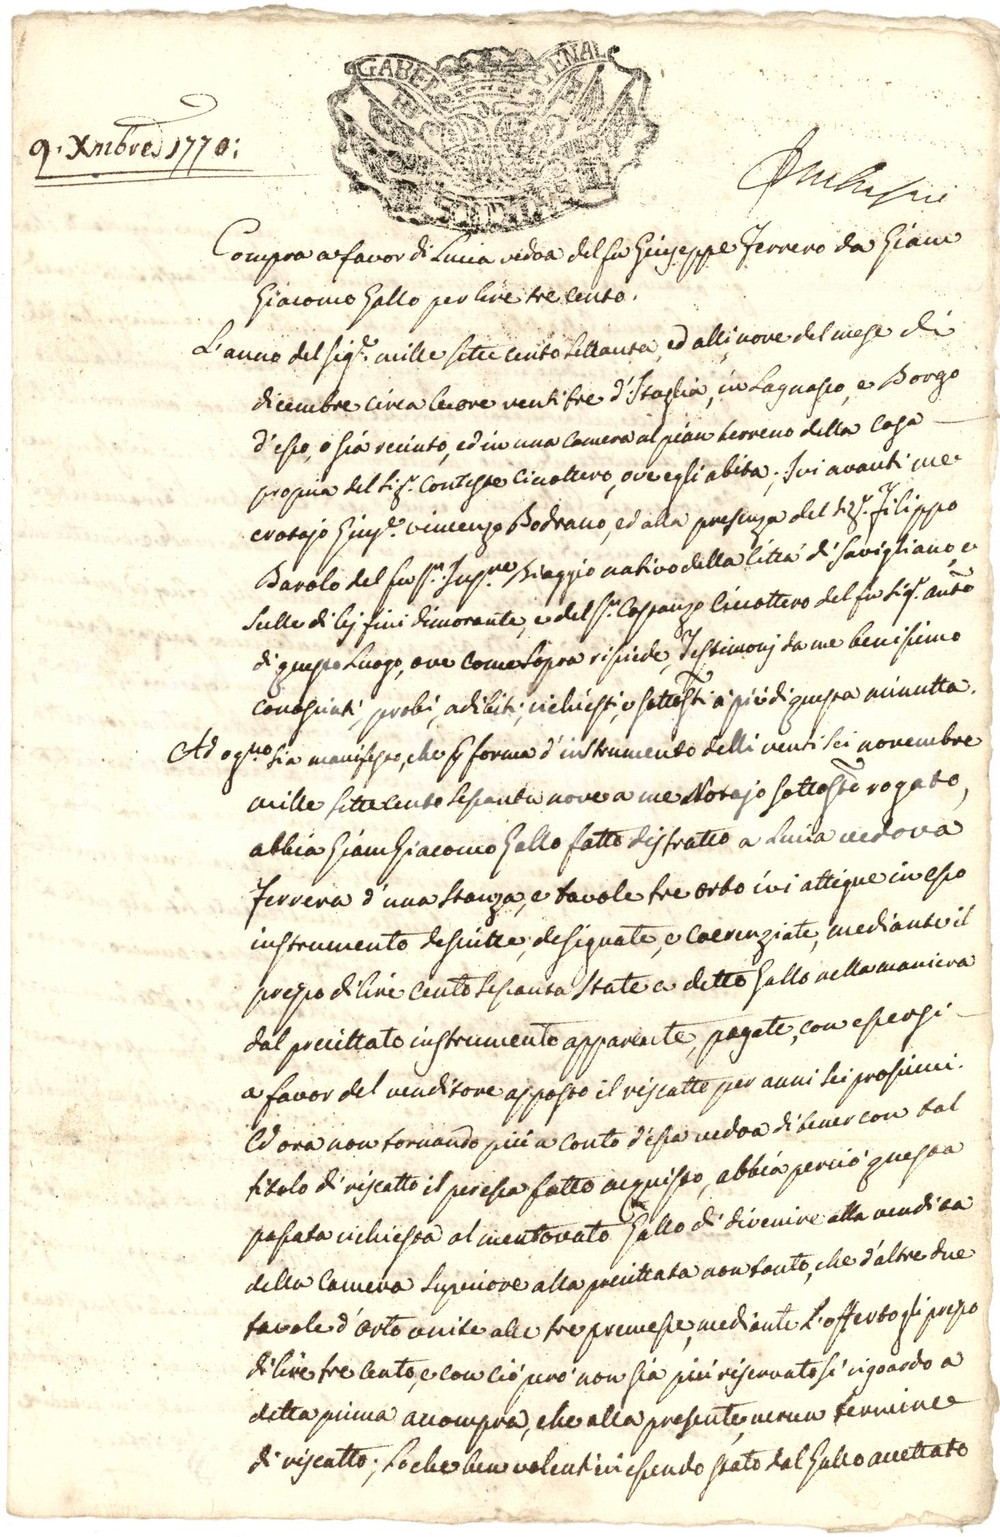 GABEL GENAL
9. Xmbre 1770:
Compra a favor di Lucia vedoa del fu Giuseppe Ferrero da Giam
Giacomo Gallo per lire tre cento.
L'anno del Sigr. mille sette cento settanta, ed alli nove del mese di
dicembre circa le ore venti tre d'Italia, in Lagnasco, e Borgo
d'esso, o sia recinto, ed in una camera al pian terreno della casa
propria del Sigr. Conteste Cicottero, ove egli abita; Ivi avanti me
Vincenzo Bodrano, ed alla presenza del Sigr. Filippo
Barolo del fu Sr. Biaggio nativo della Città di Savigliano, e
sulle di lej fini dimorante, e del Sr. Costanzo Cicottero del fu Sigr. Anto
di questo Luogo, ove come sopra risiede, Testimonj da me benissimo
conosciuti, probi, adibiti, richiesti, e sottosti a piè di questa minutta.
Ad ogn'uno sia manifesto, che p forma d'instrumento delli venti sei novembre
mille sette cento sessanta nove a me Notajo sottosto rogato,
abbia Giam Giacomo Gallo fatto distratto a Lucia vedova
Ferrera d'una stanza, e tavole tre orto ivi attigue in esso
instrumento descritte, designate, e coerenziate, mediante il
prezzo di lire cento sessanta state a detto Gallo nella maniera
dal precittato instrumento apparente, pagate, con essersi
a favor del venditore apposto il riscatto per anni sei prossimi.
Ed ora non tornando più a conto d'essa vedoa di tener con tal
titolo di riscatto il per essa fatto acquisto, abbia perciò questa
passata richiesta al mentovato Gallo di divenire alla vendita
della Camera superiore alla precittata non tanto, che d'altre due
tavole d'orto unite alle tre premesse, mediante l'offertogli prezzo
di lire tre cento, e con ciò però non sia più riservatosi riguardo a
detta prima accompra, che alla presente, verun termine
di riscatto; Lo che ben volentieri essendo stato dal Gallo accettato